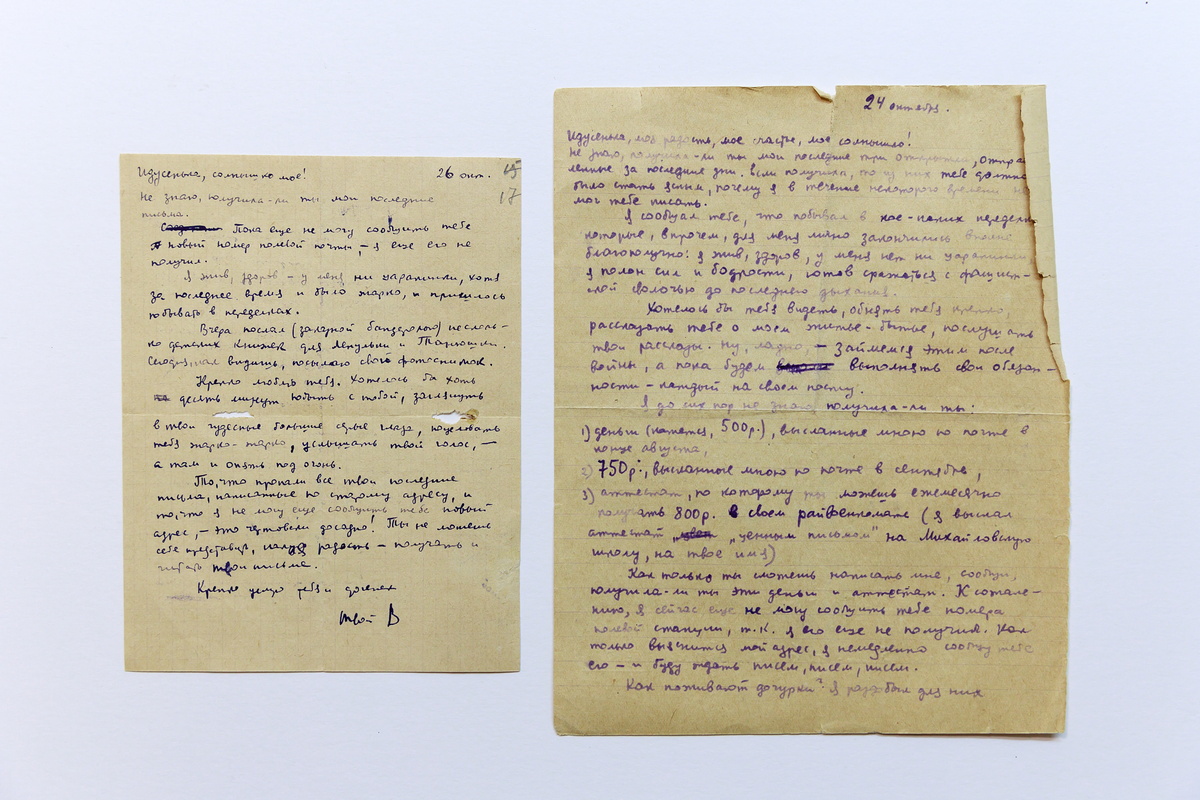 Идусенька, солнышко мое! 26 окт.
17
Не знаю, получила-ли ты мои последние
письма.
Пока еще не могу сообщить тебе
новый номер полевой почты, – я еще его не
получил.
Я жив, здоров – у меня ни царапинки, хотя
за последнее время и было жарко, и пришлось
побывать в переделках.
Вчера послал (заказной бандеролью) несколь-
ко детских книжек для и Танюшки.
Сегодня, как видишь, посылаю свой фотоснимок.
Крепко люблю тебя. Хотелось бы хоть
десять минут побыть с тобой, заглянуть
в твои чудесные большие серые глаза, поцеловать
тебя жарко-жарко, услышать твой голос, –
а там и опять под огонь.
То, что пропали все твои последние
письма, написанные по старому адресу, и
то, что я не могу еще сообщить тебе новый
адрес, – это чертовски досадно! Ты не можешь
себе представить, какая радость – получать и
читать твои письма.
Крепко целую тебя и дочек
твой В
24 октября.
Идусенька, моя радость, мое счастье, мое солнышко!
Не знаю, получила-ли ты мои последние три открытки, отправ
ленные за последние дни. Если получила, то из них тебе должно
было стать ясным, почему я в течение некоторого времени не
мог тебе писать.
Я сообщал тебе, что побывал в кое-каких передел
которые, впрочем, для меня лично закончились вполне
благополучно: я жив, здоров, у меня нет ни царапинки
я полон сил и бодрости, готов сражаться с фашист-
ской сволочью до последнего дыхания.
Хотелось бы тебя видеть, обнять тебя крепко,
рассказать тебе о моем житье-бытье, послушать
твои рассказы. Ну, ладно, – займемся этим после
войны, а пока будем выполнять свои обязан-
ности – каждый на своем посту.
Я до сих пор не знаю, получила-ли ты:
1) деньги (кажется, 500р.), высланные мною по почте в
конце августа,
2) 750р., высланные мною по почте в сентябре,
3) аттестат, по которому ты можешь ежемесячно
получать 800р. в своем райвоенкомате (я выслал
аттестат „ценным письмом" на Михайловскую
школу, на твое имя)
Как только ты сможешь написать мне, сообщи,
получила-ли ты эти деньги и аттестат. К сожале-
нию, я сейчас еще не могу сообщить тебе номера
полевой станции, т.к. я его еще не получил. Как
только выяснится мой адрес, я немедленно сообщу тебе
его – и буду ждать писем, писем, писем.
Как поживают дочурки? Я раздобыл для них